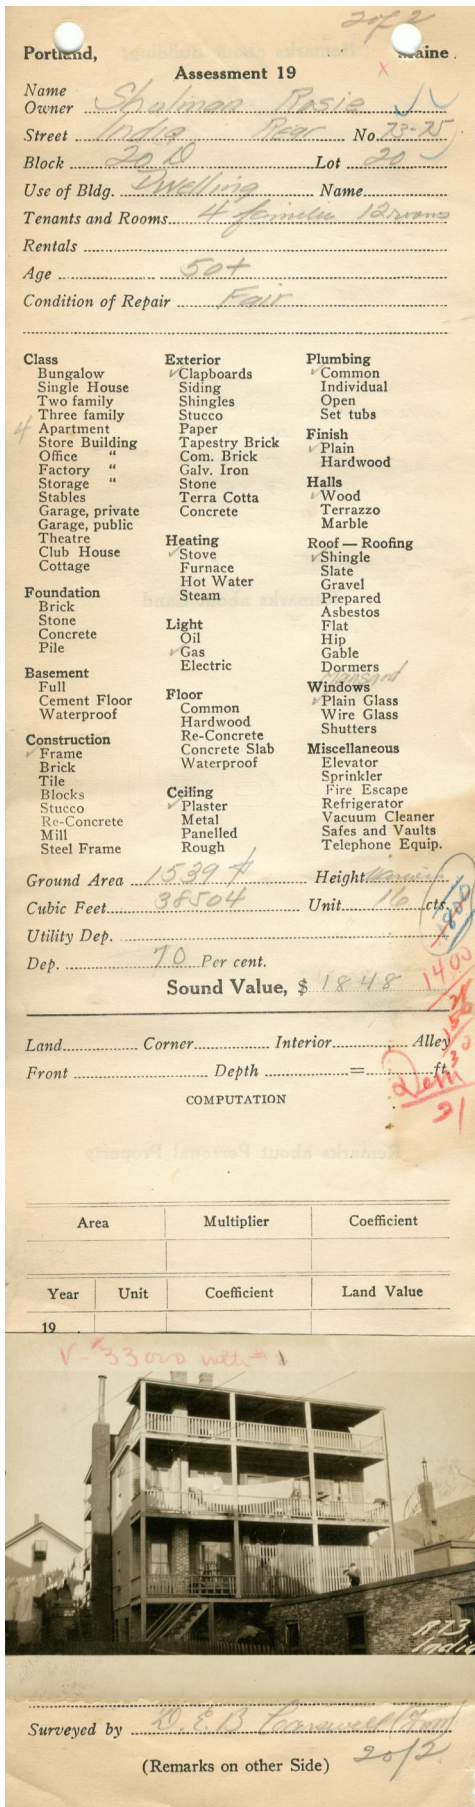 2 of 2
Portland, Maine
Assessment 19
Name
Owner Shulman Rosie
Street India Rear No. 73-75
Block 20 D Lot 20
Use of Bldg. Dwelling Name
Tenants and Rooms 4 families 12 rooms
Rentals
Age 50+
Condition of Repair Fair
Class
Bungalow
Single House
Two family
Three family
4 Apartment
Store Building
Office "
Factory "
Storage "
Stables
Garage, private
Garage, public
Theatre
Club House
Cottage
Foundation
Brick
Stone
Concrete
Pile
Basement
Full
Cement Floor
Waterproof
Construction
✓ Frame
Brick
Tile
Blocks
Stucco
Re-Concrete
Mill
Steel Frame
Exterior
✓ Clapboards
Siding
Shingles
Stucco
Paper
Tapestry Brick
Com. Brick
Galv. Iron
Stone
Terra Cotta
Concrete
Heating
✓ Stove
Furnace
Hot Water
Steam
Light
Oil
✓ Gas
Electric
Floor
Common
Hardwood
Re-Concrete
Concrete Slab
Waterproof
Ceiling
✓ Plaster
Metal
Panelled
Rough
Plumbing
✓ Common
Individual
Open
Set tubs
Finish
✓ Plain
Hardwood
Halls
✓ Wood
Terrazzo
Marble
Roof — Roofing
✓ Shingle
Slate
Gravel
Prepared
Asbestos
Flat
Hip
Gable
Dormers
Mansard
Windows
✓ Plain Glass
Wire Glass
Shutters
Miscellaneous
Elevator
Sprinkler
Fire Escape
Refrigerator
Vacuum Cleaner
Safes and Vaults
Telephone Equip.
Ground Area 1539 # Height
Cubic Feet 38504 Unit 16 cts.
1800
Utility Dep.
Dep. 70 Per cent.
1400
Sound Value, $ 1848
Land Corner Interior Alley
Front Depth = ft.
Dem
COMPUTATION
Area Multiplier Coefficient
Year Unit Coefficient Land Value
19
V-$33000 with #1
R73
India
Surveyed by D. E. B. Carswell
(Remarks on other Side) 2 of 2